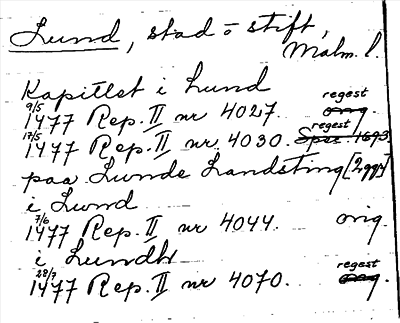 Lund, stad o stift,
Malm. l.
Kapitlet i Lund
9/5 1477 Rep. II nr 4027. regest orig.
17/5 1477 Rep. II nr 4030. regest 1693
paa Lunde Landsting [2 ggr]
i Lund
7/6 1477 Rep. II nr 4044. orig.
i Lundh
28/7 1477 Rep. II nr 4070. regest